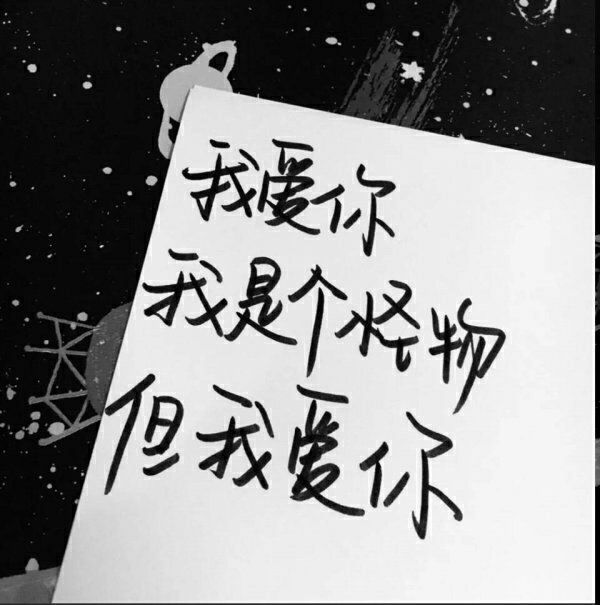 我爱你
我是个怪物
但我爱你